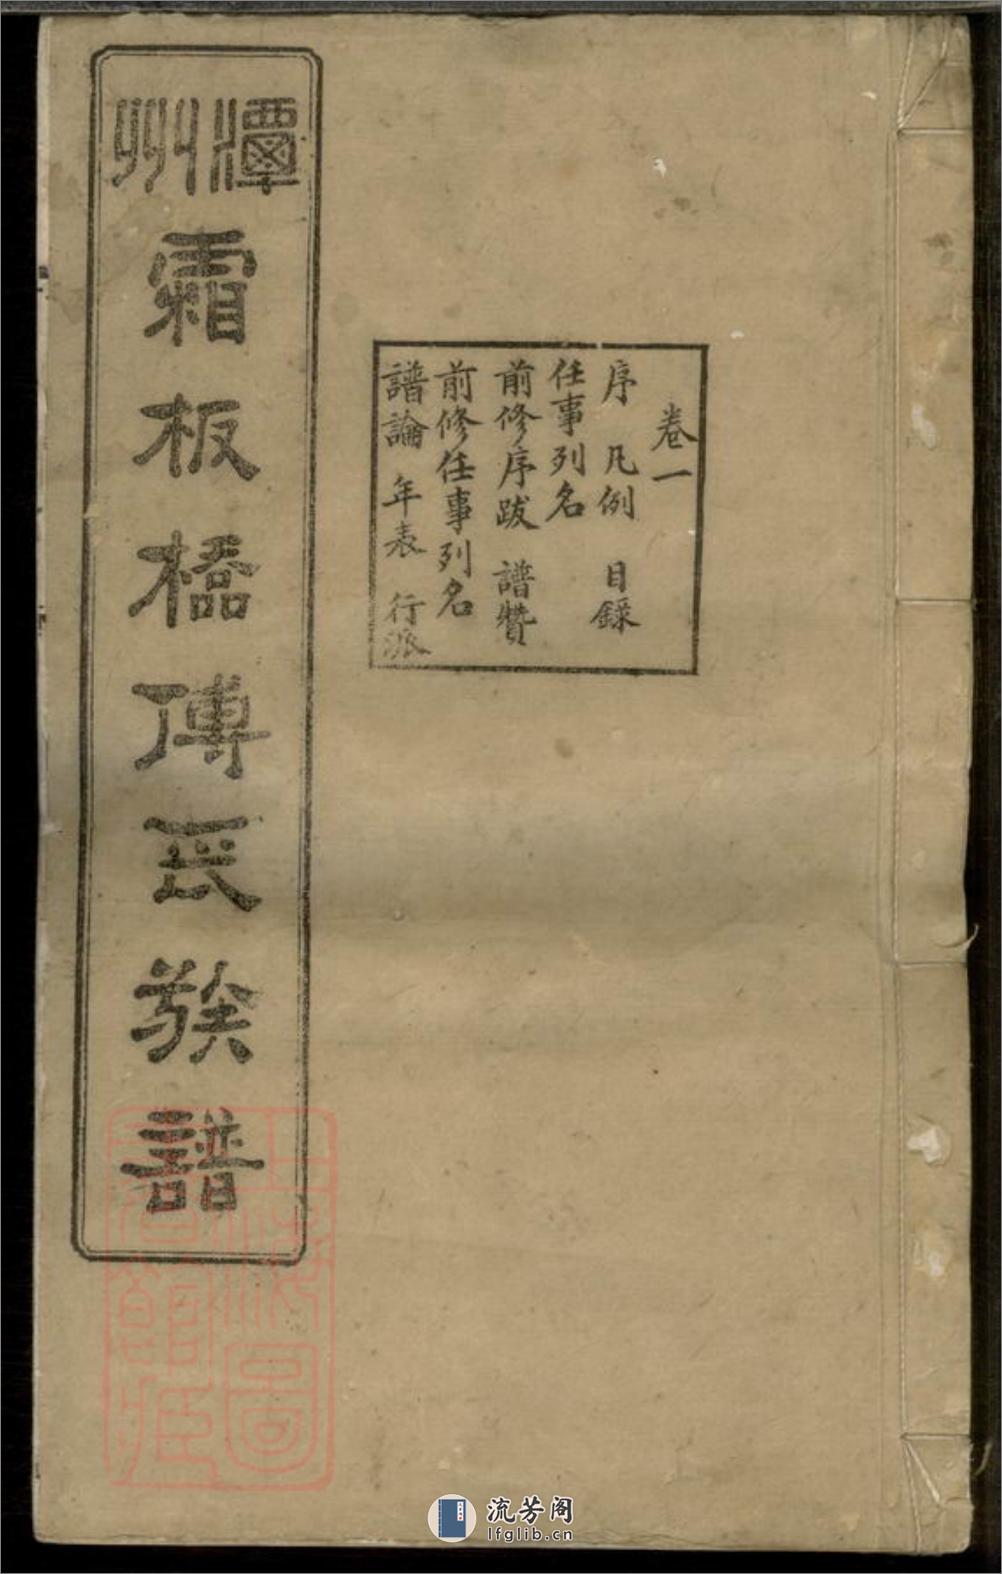 潭州
霜板橋傅氏族譜
卷一
序 凡例 目錄
任事列名
前修序跋 譜贊
前修任事列名
譜論 年表 行派
上海圖書館藏
流芳阁
lfglib.cn